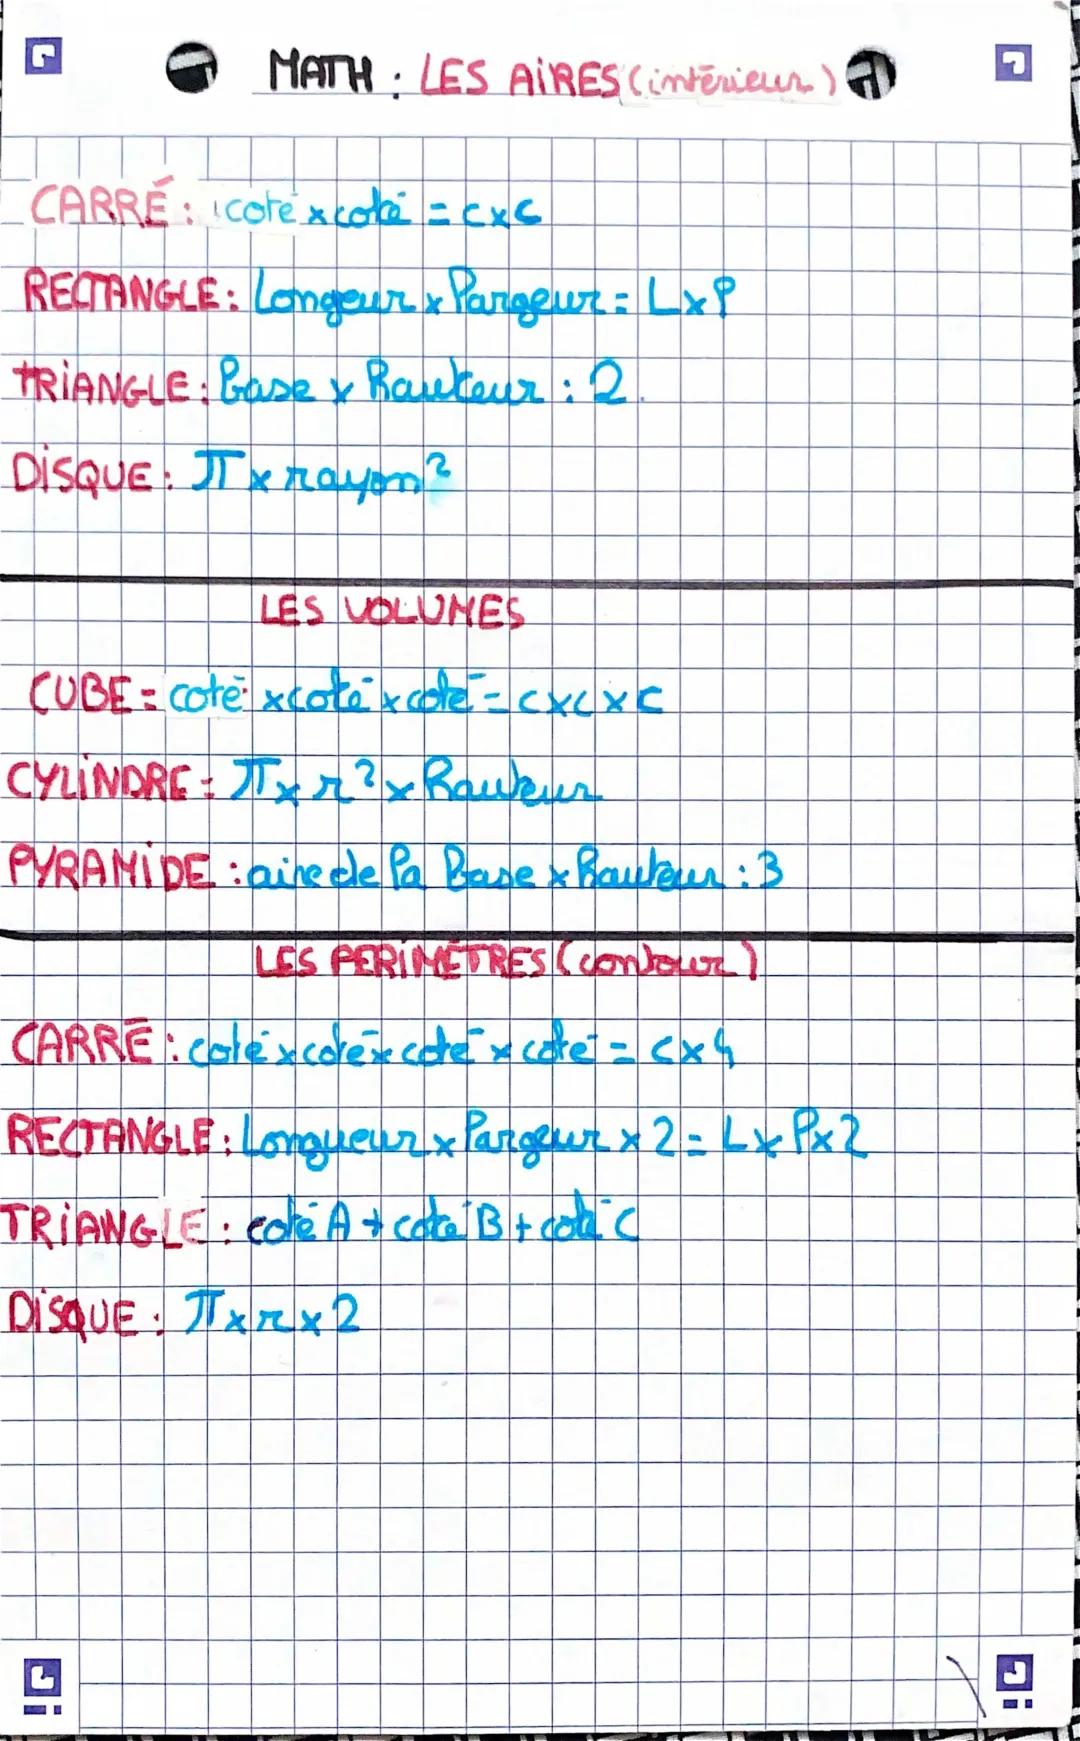 MATH : LES AIRES (intérieur)
CARRÉ : coté x coté = c x c
RECTANGLE : Longeur x largeur = L x l
TRIANGLE : base x hauteur : 2.
DISQUE : π x rayon²
LES VOLUMES
CUBE = coté x coté x coté = c x c x c
CYLINDRE = π x r² x hauteur
PYRAMIDE : aire de la base x hauteur : 3
LES PERIMÉTRES (contour)
CARRÉ : coté x coté x coté x coté = c x 4
RECTANGLE : Longueur x largeur x 2 = L x l x 2
TRIANGLE : coté A + coté B + coté C
DISQUE : π x r x 2